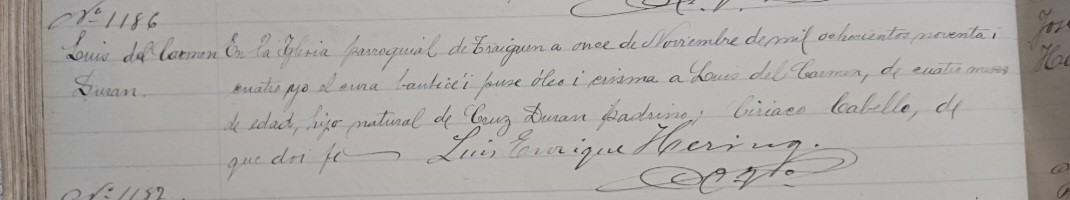 Nº 1186
Luis del Carmen
Duran.
En la Iglesia parroquial de Traiguen a once de Noviembre de mil ochocientos noventa i
cuatro yo el cura bauticé i puse óleo i crisma a Luis del Carmen, de cuatro meses
de edad, hijo natural de Cruz Duran padrino; Ciriaco Cabello, de
que doi fe — Luis Enrique Hering.
Nº 1187